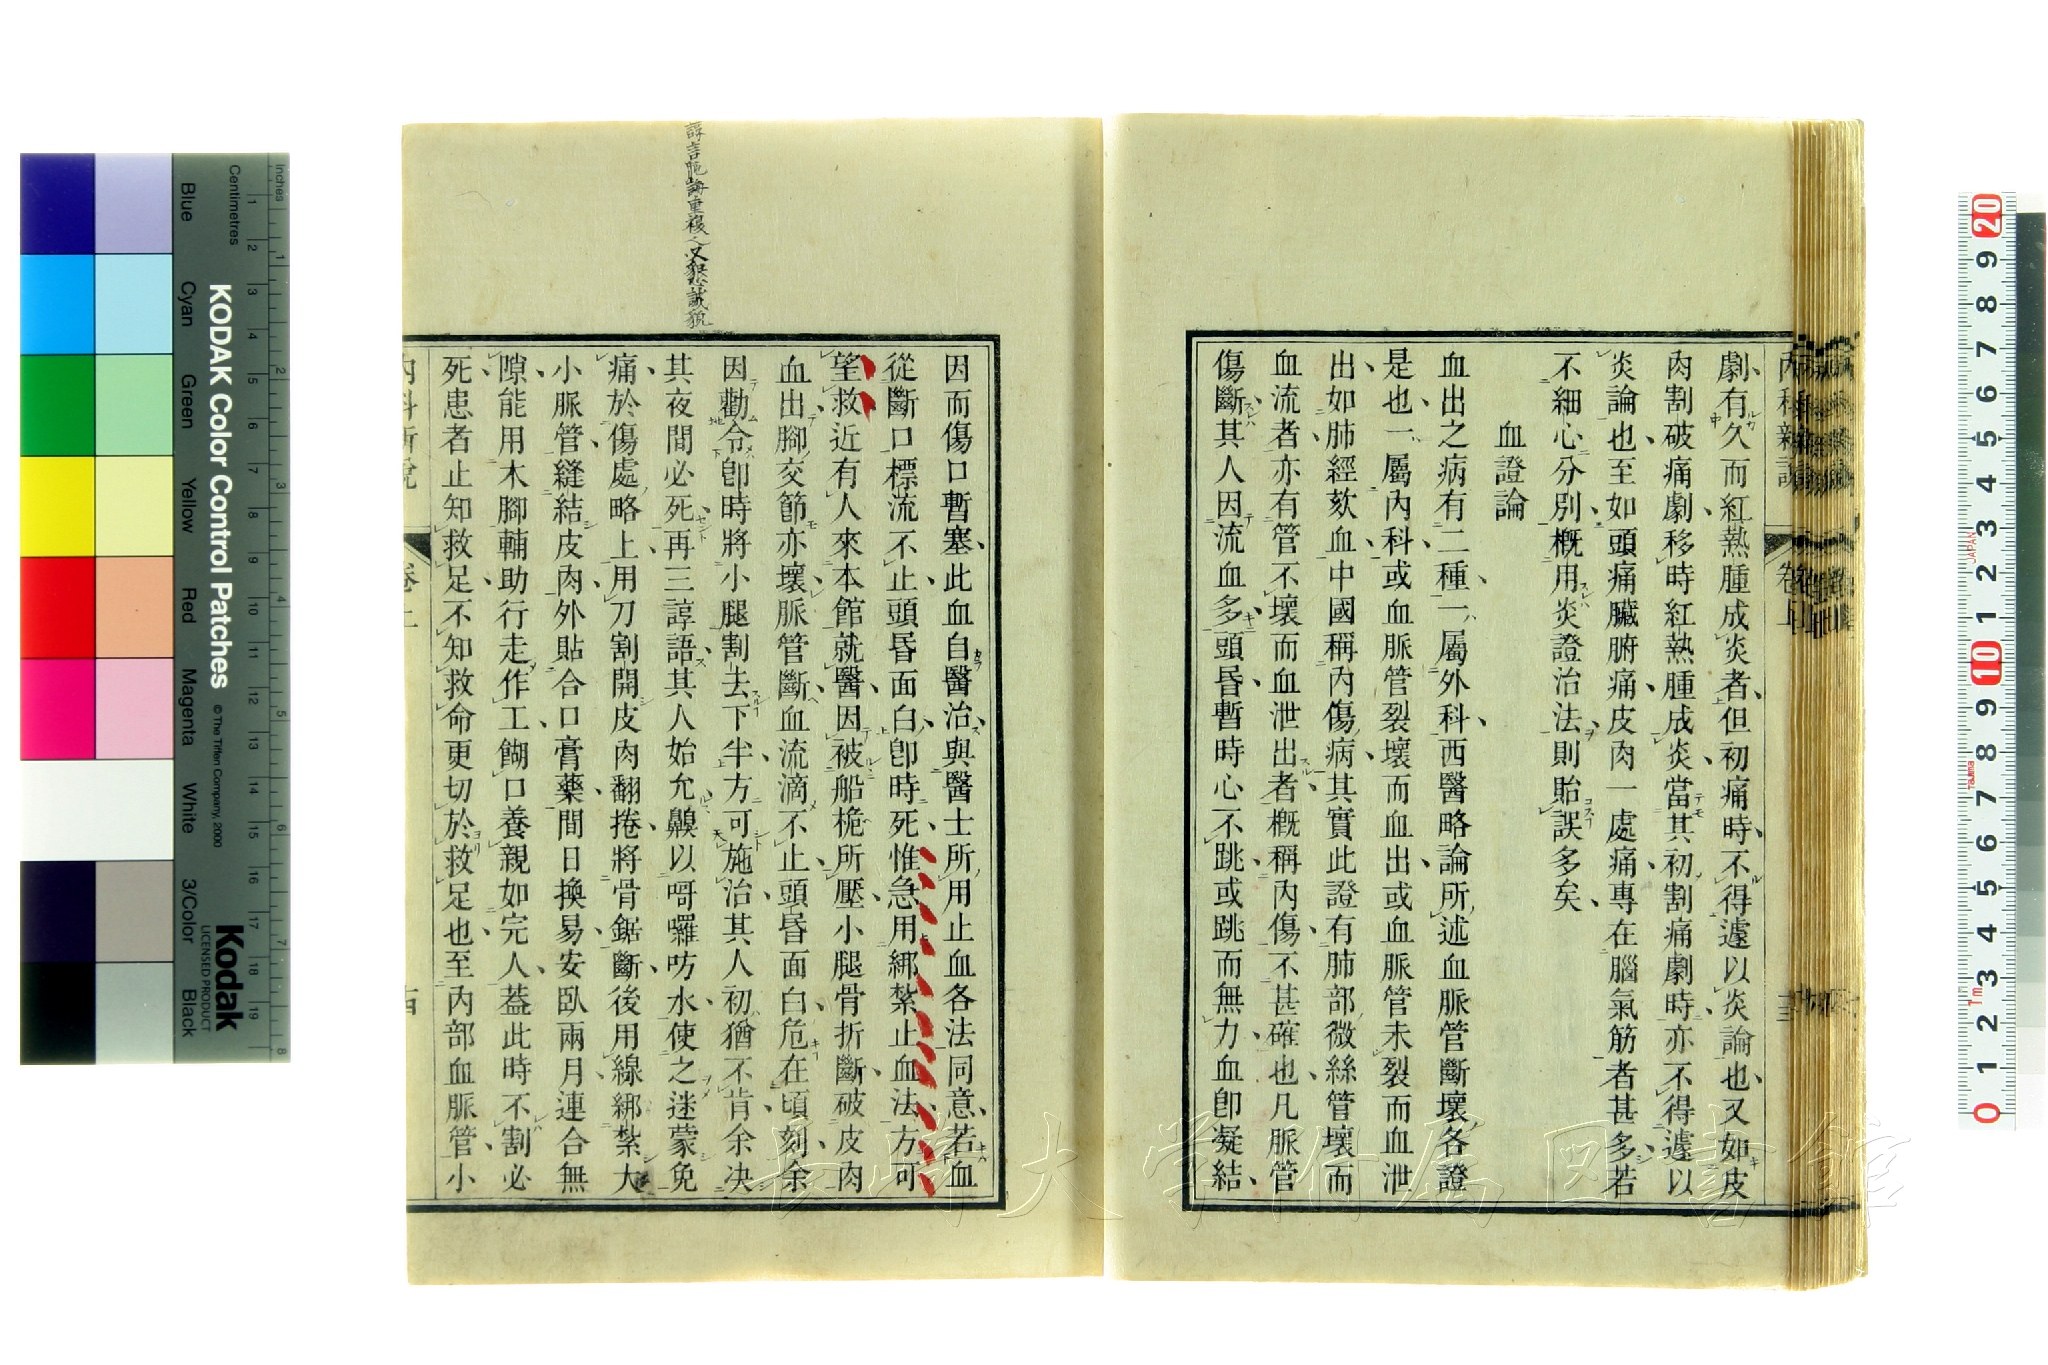 劇有久而紅熱腫成炎者但初痛時不得遽以炎論也又如皮
肉割破痛劇移時紅熱腫成炎當其初割痛劇時亦不得遽以
炎論也至如頭痛臟腑痛皮肉一處痛專在腦氣筋者甚多若
不細心分別概用炎證治法則貽誤多矣
血證論
血出之病有二種一屬外科西醫略論所述血脈管斷壞各證
是也一屬內科或血脈管裂壞而血出或血脈管未裂而血泄
出如肺經欬血中國稱內傷病其實此證有肺部微絲管壞而
血流者亦有管不壞而血泄出者概稱內傷不甚確也凡脈管
傷斷其人因流血多頭昏暫時心不跳或跳而無力血卽凝結
因而傷口暫塞此血自醫治與醫士所用止血各法同意若血
從斷口標流不止頭昏面白卽時死惟急用綁紮止血法方可
望救近有人來本館就醫因被船桅所壓小腿骨折斷破皮肉
血出腳交節亦壞脈管斷血流滴不止頭昏面白危在頃刻余
因勸令卽時將小腿割去下半方可施治其人初猶不肯余决
其夜間必死再三諄語其人始允齅以哥囉吥水使之迷蒙免
痛於傷處略上用刀割開皮肉翻捲將骨鋸斷後用線綁紮大
小脈管縫結皮肉外貼合口膏藥間日換易安臥兩月連合無
隙能用木腳輔助行走作工餬口養親如完人蓋此時不割必
死患者止知救足不知救命更切於救足也至內部血脈管小
內科新說
卷上
內科新說
卷上
十三
KODAK Color Control Patches
© The Tiffen Company, 2000
Kodak
LICENSED PRODUCT
Inches
Centimetres
Blue
Cyan
Green
Yellow
Red
Magenta
White
3/Color
Black
長崎大学附属図書館